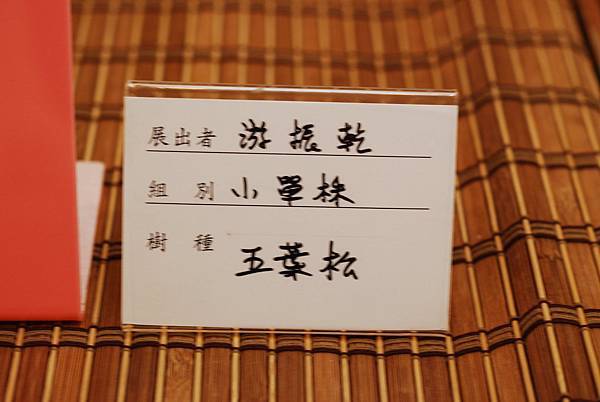 展出者 游振乾
組別 小單株
樹種 五葉松